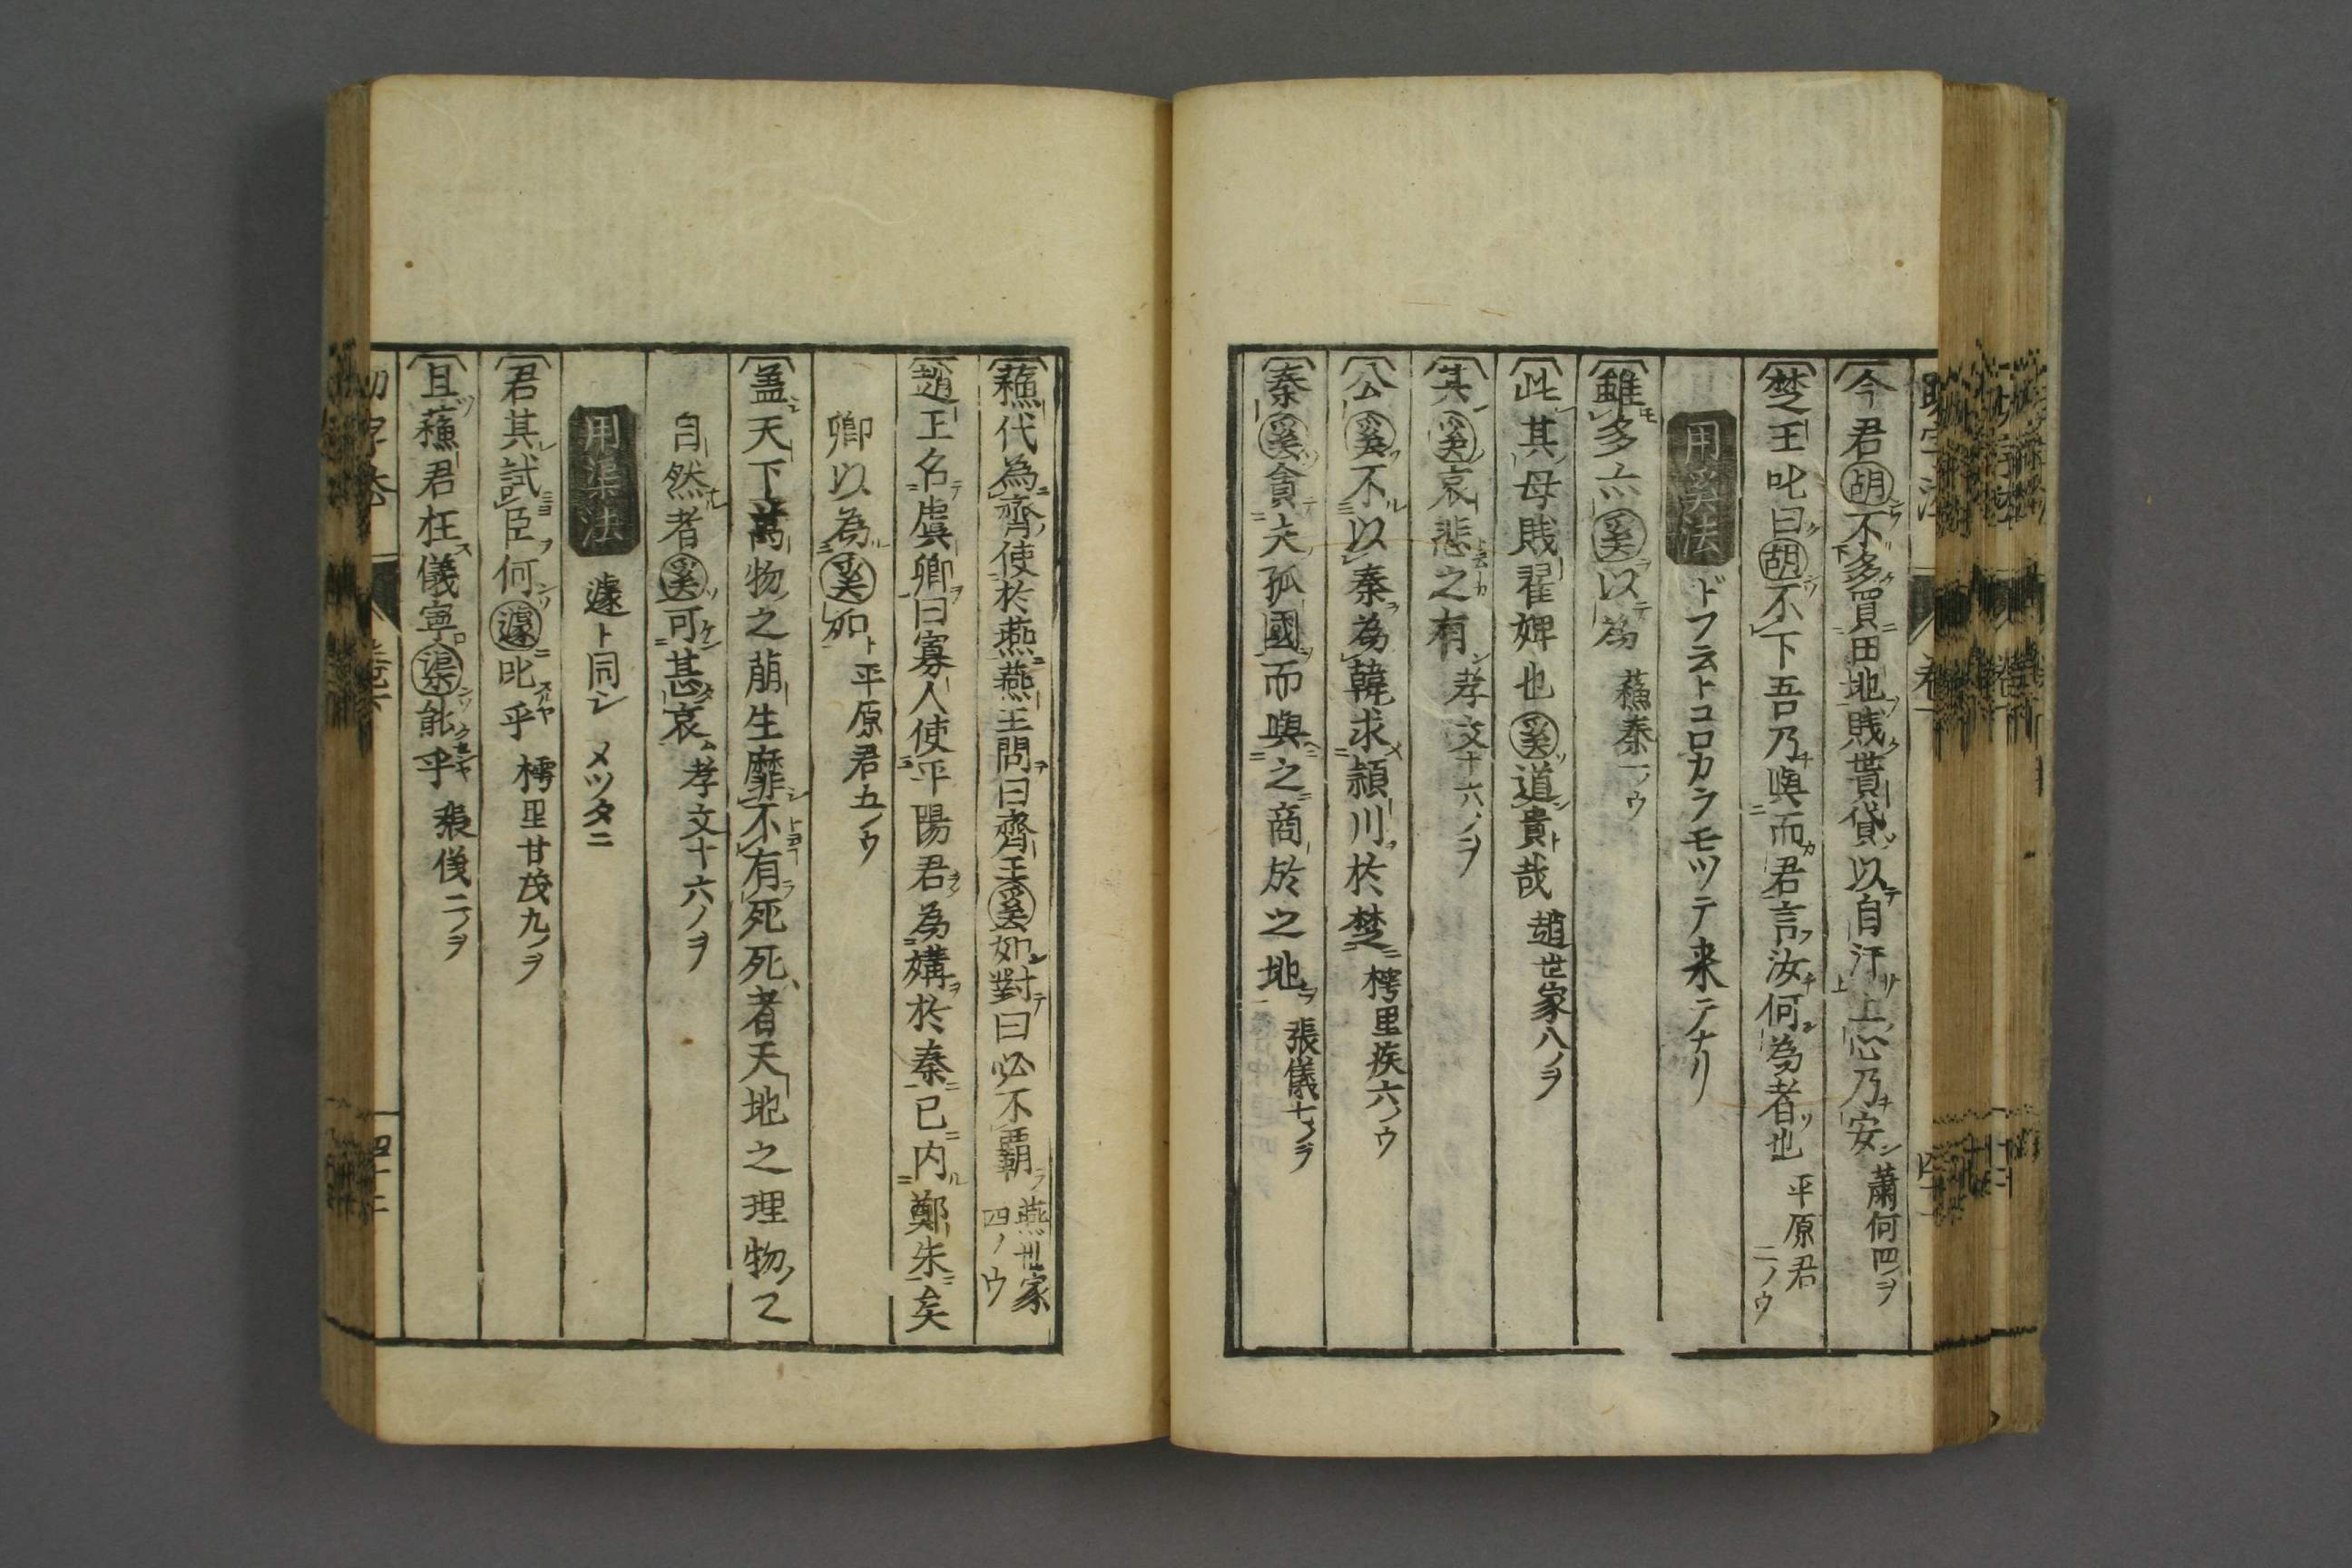 今君胡不多買田地賎貰貸以自汙上心乃安 蕭何四ノヲ
楚王叱曰胡不下吾乃與而君言汝何為者也 平原君二ノウ
用奚法 ドフ云トコロカラモツテ来テナリ
雖多亦奚以為 蘓秦一ノウ
此其母賎翟婢也奚道貴哉 趙世家八ノヲ
其奚哀悲之有 孝文十六ノヲ
公奚不以秦為韓求潁川於楚 樗里疾六ノウ
秦奚貪夫孤國而與之商於之地 張儀七ノヲ
蘓代為齊使於燕燕王問曰齊王奚如對曰必不覇 燕世家四ノウ
趙王名虞卿曰寡人使平陽君為媾於秦已内鄭朱矣
卿以為奚如 平原君五ノウ
盖天下萬物之萠生靡不有死死者天地之理物ノ之
自然者奚可甚哀 孝文十六ノヲ
用渠法 遽ト同シ メツタニ
君其試臣何遽叱乎 樗里甘茂九ノヲ
且蘓君在儀寧渠能乎 張儀二ノヲ
四十二